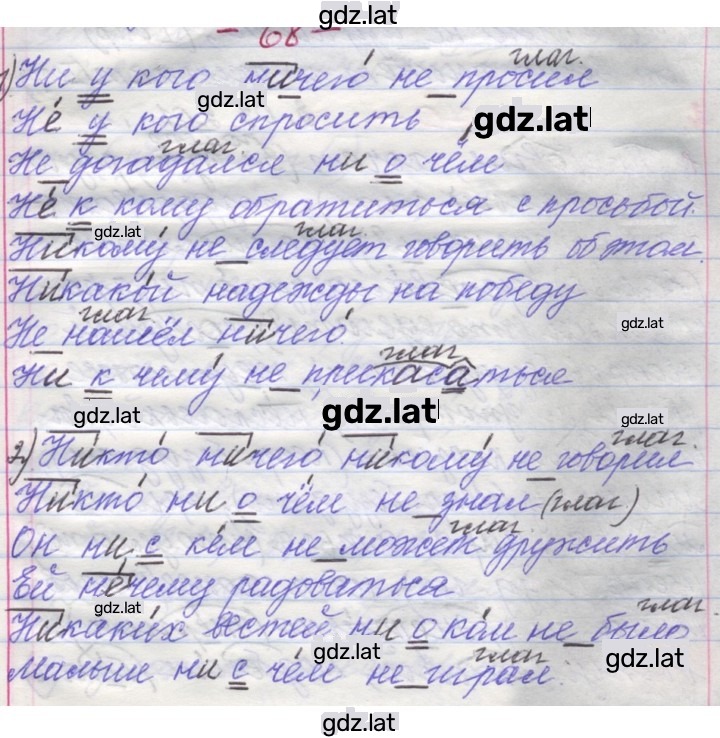 gdz.lat
- 68 -
глаг.
1) Ни у кого ничего не просил
gdz.lat
gdz.lat
Не у кого спросить
глаг.
Не догадался ни о чём
Не к кому обратиться с просьбой.
gdz.lat
глаг.
Никому не следует говорить об этом.
Никакой надежды на победу
глаг
gdz.lat
Не нашёл ничего.
глаг.
Ни к чему не прикасаться
gdz.lat
gdz.lat
gdz.lat
глаг.
2) Никто ничего никому не говорил
Никто ни о чём не знал (глаг.)
глаг.
Он ни с кем не может дружить
Ей нечему радоваться
gdz.lat
глаг
Никаких вестей ни о ком не было
gdz.lat
глаг.
gdz.lat
Малыш ни с чем не играл.
gdz.lat